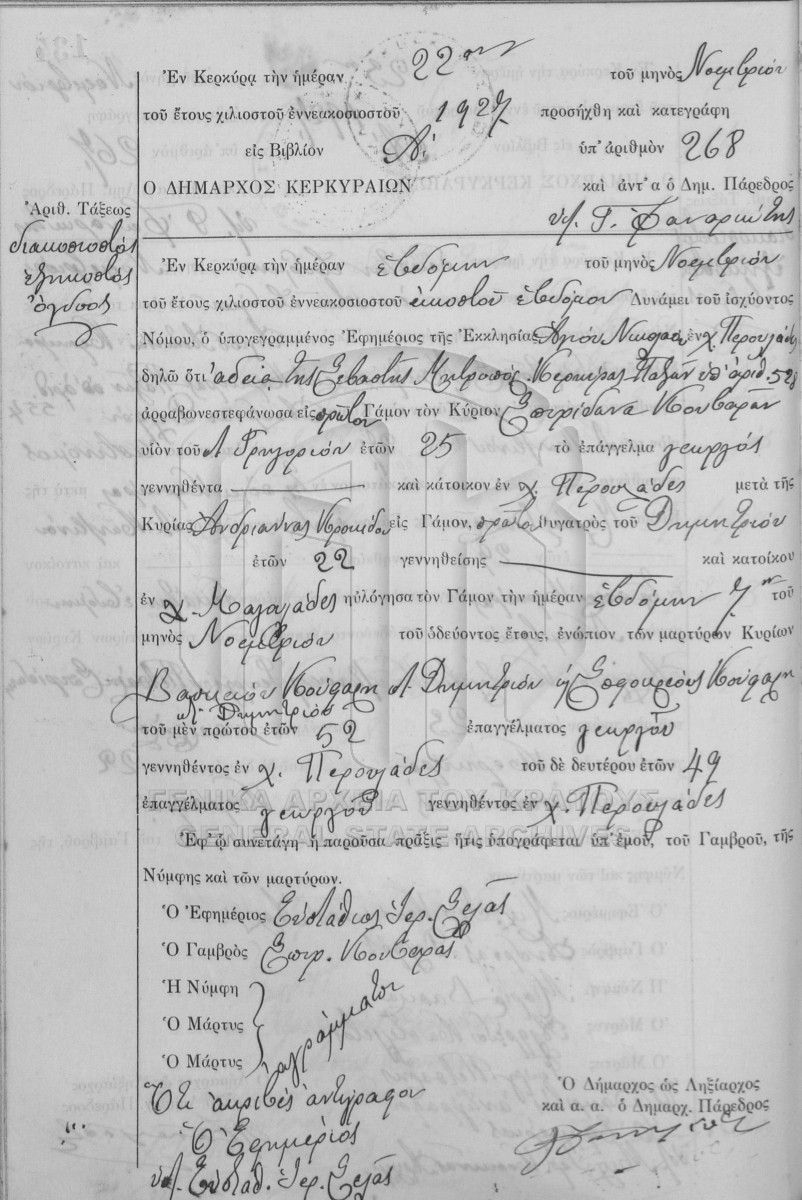 Ἐν Κερκύρᾳ τὴν ἡμέραν 22αν τοῦ μηνὸς Νοεμβρίου
τοῦ ἔτους χιλιοστοῦ ἐννεακοσιοστοῦ 1927 προσήχθη καὶ κατεγράφη
εἰς Βιβλίον Α' ὑπ' ἀριθμὸν 268
Ο ΔΗΜΑΡΧΟΣ ΚΕΡΚΥΡΑΙΩΝ καὶ ἀντ' α ὁ Δημ. Πάρεδρος
Ἀριθ. Τάξεως
διακοσιοστός
ἑξηκοστός
ὄγδοος
Ἐν Κερκύρᾳ τὴν ἡμέραν ἑβδόμην τοῦ μηνὸς Νοεμβρίου
τοῦ ἔτους χιλιοστοῦ ἐννεακοσιοστοῦ εἰκοστοῦ ἑβδόμου Δυνάμει τοῦ ἰσχύοντος
Νόμου, ὁ ὑπογεγραμμένος Ἐφημέριος τῆς Ἐκκλησίας Ἁγίου Νικολάου ἐν χ. Περουλάδες
δηλῶ ὅτι ἀδείᾳ τῆς Σεβαστῆς Μητροπόλ. Κερκύρας Παξῶν ὑπ' ἀριθ. 528
ἀρραβωνεστεφάνωσα εἰς πρῶτον Γάμον τὸν Κύριον Σπυρίδωνα Κουβαρᾶν
υἱὸν τοῦ Γρηγορίου ἐτῶν 25 τὸ ἐπάγγελμα γεωργός
γεννηθέντα καὶ κάτοικον ἐν χ. Περουλάδες μετὰ τῆς
Κυρίας Ἀνδριάννας εἰς Γάμον, πρῶτον θυγατρὸς τοῦ Δημητρίου
ἐτῶν 22 γεννηθείσης καὶ κατοίκου
ἐν χ. Μαγουλάδες ηὐλόγησα τὸν Γάμον τὴν ἡμέραν ἑβδόμην 7ην τοῦ
μηνὸς Νοεμβρίου τοῦ ὁδεύοντος ἔτους, ἐνώπιον τῶν μαρτύρων Κυρίων
Βασιλείου Δημητρίου
Δημητρίου
τοῦ μὲν πρώτου ἐτῶν 52 ἐπαγγέλματος γεωργοῦ
γεννηθέντος ἐν χ. Περουλάδες τοῦ δὲ δευτέρου ἐτῶν 49
ἐπαγγέλματος γεωργοῦ γεννηθέντος ἐν χ. Περουλάδες
ΓΕΝΙΚΑ ΑΡΧΕΙΑ ΤΟΥ ΚΡΑΤΟΥΣ
GENERAL STATE ARCHIVES
Ἐφ' ᾧ συνετάγη ἡ παροῦσα πρᾶξις ἥτις ὑπογράφεται ὑπ' ἐμοῦ, τοῦ Γαμβροῦ, τῆς
Νύμφης καὶ τῶν μαρτύρων.
Ὁ Ἐφημέριος Εὐστάθιος Ἱερ.
Ὁ Γαμβρὸς Σπυρ. Κουβαρᾶς
Ἡ Νύμφη
Ὁ Μάρτυς ἀγράμματοι
Ὁ Μάρτυς
Ὅτι ἀκριβὲς ἀντίγραφον
Ὁ Ἐφημέριος
Εὐστάθ. Ἱερ.
Ὁ Δήμαρχος ὡς Ληξίαρχος
καὶ α. α. ὁ Δημαρχ. Πάρεδρος